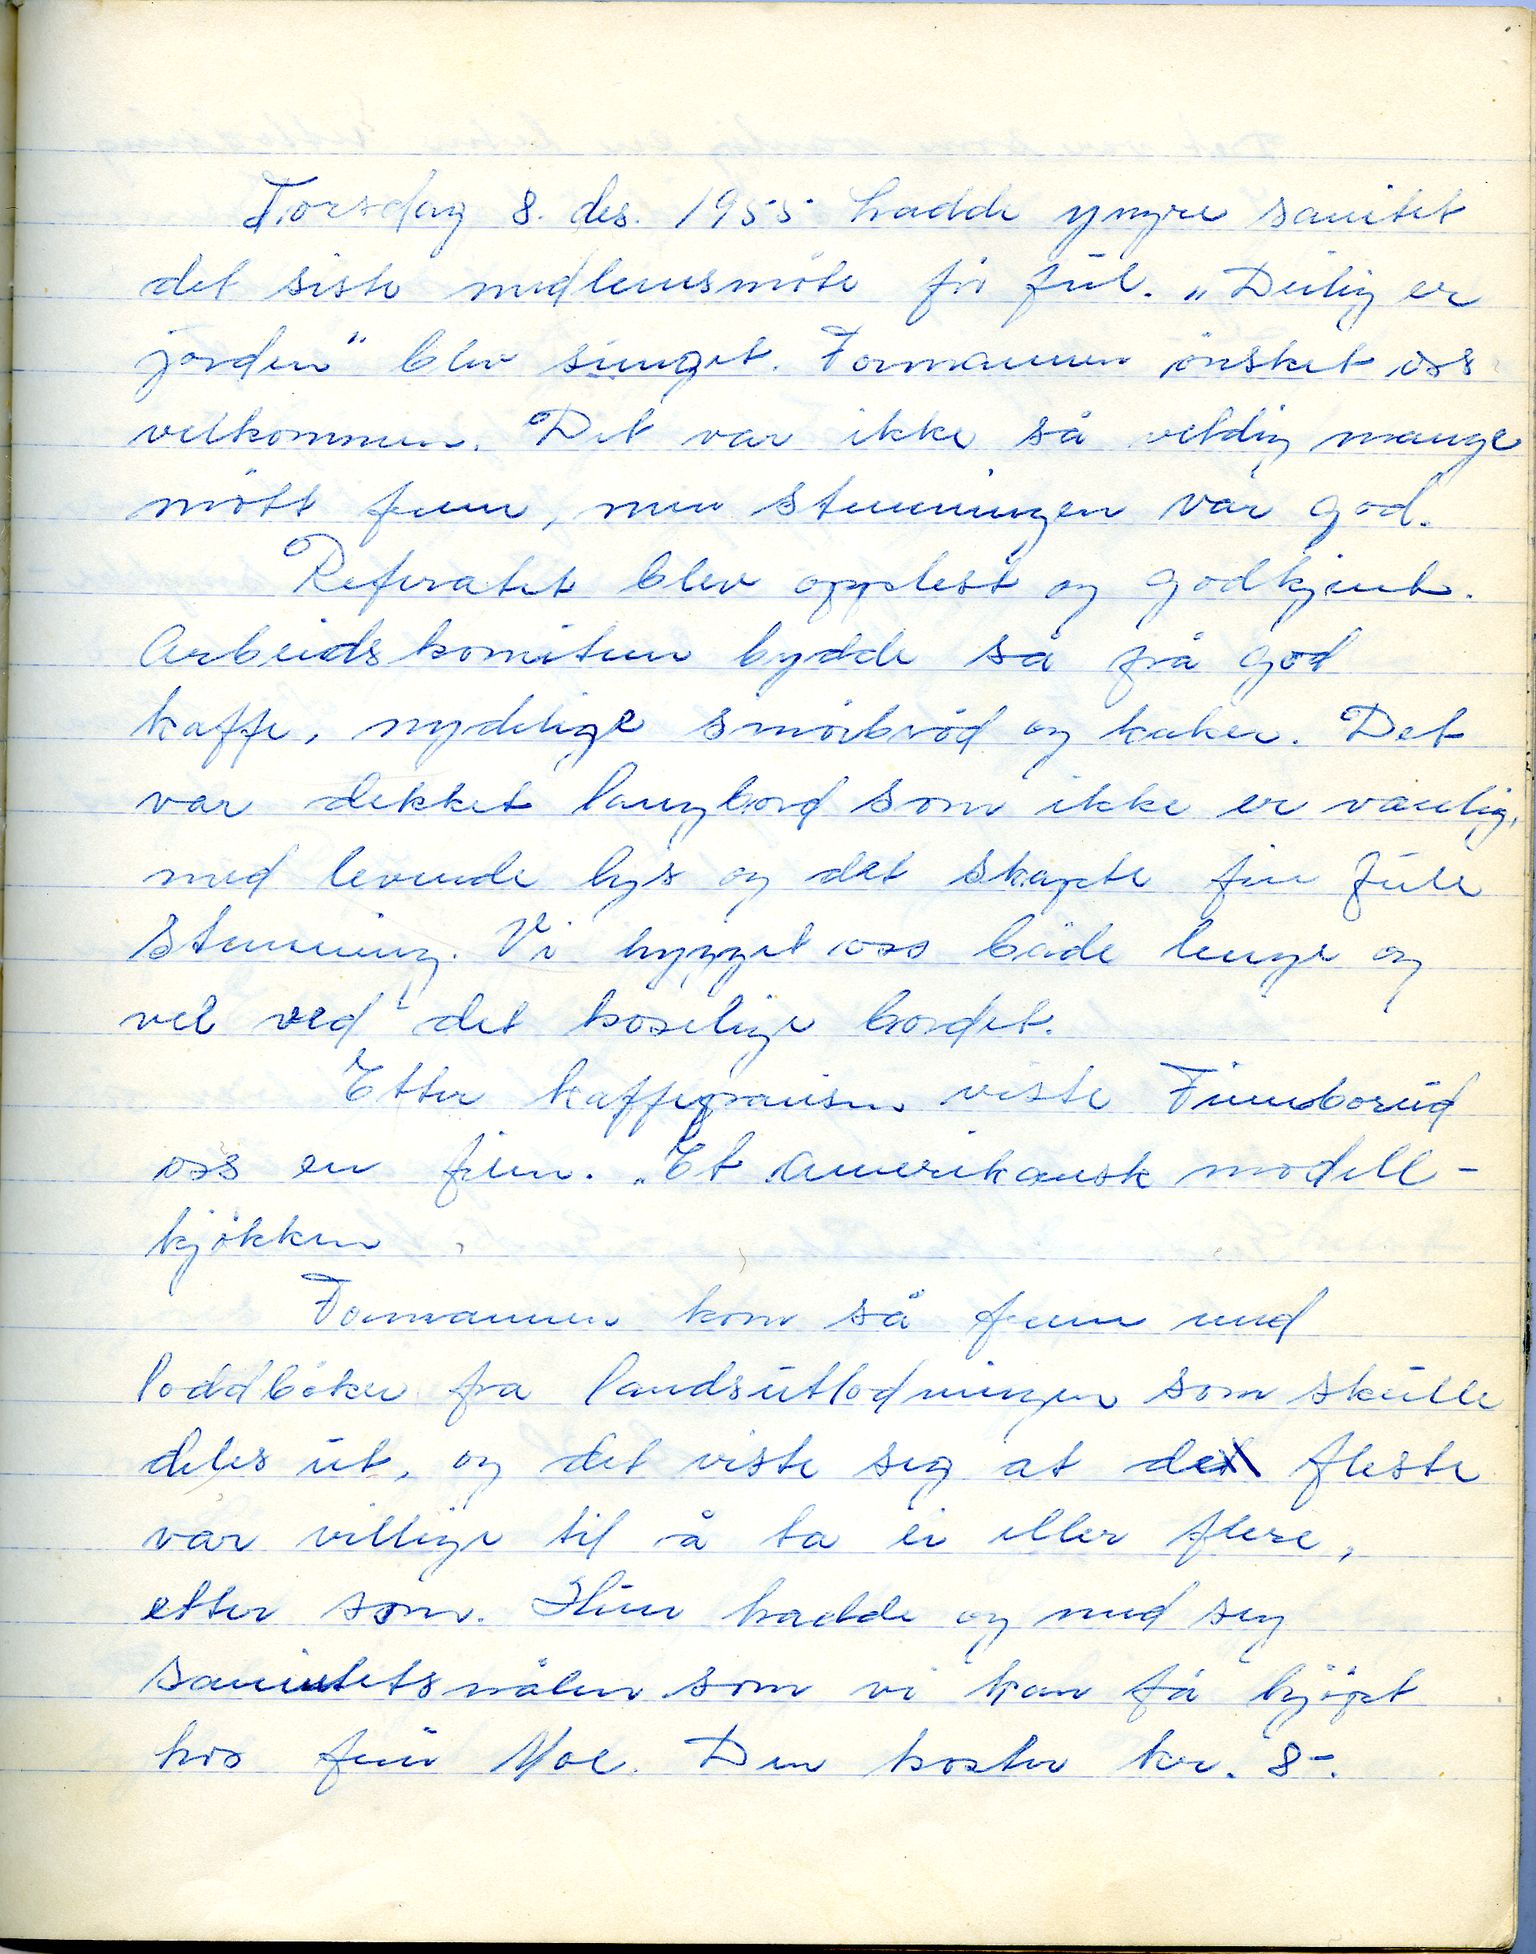 Torsdag 8. des. 1955 hadde yngre sanitet
det siste medlemsmöte för jul. „Deilig er
jorden" blev sunget. Formannen önsket oss
velkommen. Det var ikke så veldig mange
mött frem, men stemningen var god.
Referatet blev opplest og godkjent.
Arbeidskomiteen bydde så på god
kaffe, nydelige smörbröd og kaker. Det
var dekket langbord som ikke er vanlig,
med levende lys og det skapte fin jule
stemning. Vi hygget oss både lenge og
vel ved det koselige bordet.
Etter kaffepausen viste Finnborud
oss en film. „Et Amerikansk modell-
kjökken
Formannen kom så frem med
loddböker fra landsutlodningen som skulle
deles ut, og det viste seg at de fleste
var villige til å ta ei eller flere,
etter som. Hun hadde og med seg
sanitetsnålen som vi kan få kjöpt
hos fru Moe. Den koster kr. 8-.